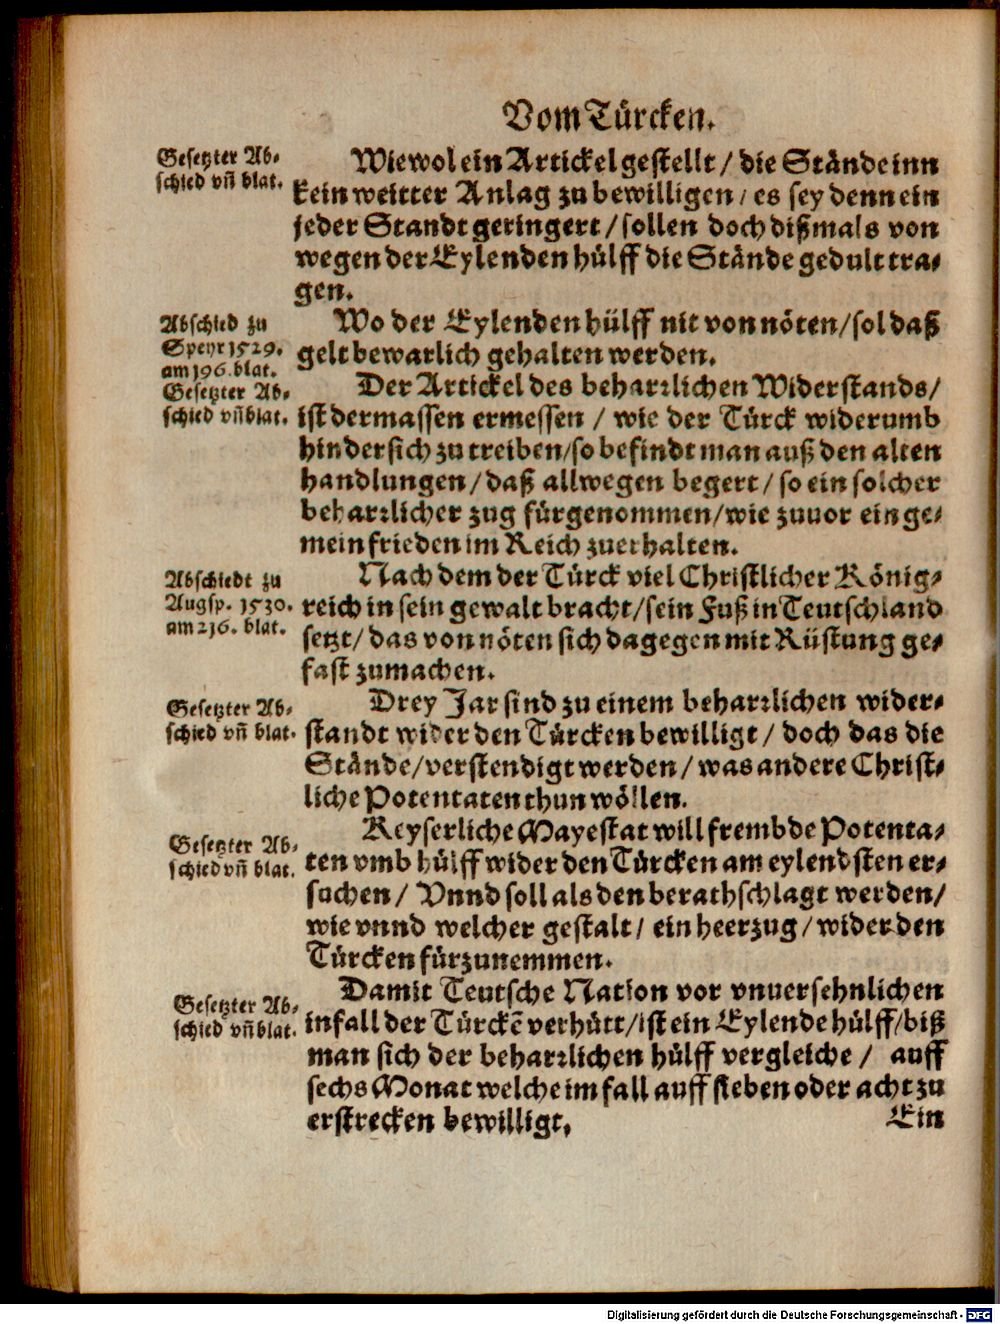 Vom Türcken.
Gesetzter Ab-
schied vñ blat.
Wiewol ein Artickel gestellt / die Stände inn
kein weitter Anlag zu bewilligen / es sey denn ein
jeder Standt geringert / sollen doch dißmals von
wegen der Eylenden hülff die Stände gedult tra-
gen.
Abschied zu
Speyr 1529.
am 196. blat.
Wo der Eylenden hülff nit von nöten / sol daß
gelt bewarlich gehalten werden.
Gesetzter Ab-
schied vñ blat.
Der Artickel des beharrlichen Widerstands /
ist dermassen ermessen / wie der Türck widerumb
hindersich zu treiben / so befindt man auß den alten
handlungen / daß allwegen begert / so ein solcher
beharrlicher zug fürgenommen / wie zuuor ein ge-
mein frieden im Reich zuerhalten.
Abschiedt zu
Augsp. 1530.
am 216. blat.
Nach dem der Türck viel Christlicher König-
reich in sein gewalt bracht / sein Fuß in Teutschland
setzt / das von nöten sich dagegen mit Rüstung ge-
fast zumachen.
Gesetzter Ab-
schied vñ blat.
Drey Jar sind zu einem beharrlichen wider-
standt wider den Türcken bewilligt / doch das die
Stände / verstendigt werden / was andere Christ-
liche Potentaten thun wöllen.
Gesetzter Ab-
schied vñ blat.
Keyserliche Mayestat will frembde Potenta-
ten vmb hülff wider den Türcken am eylendsten er-
suchen / Vnnd soll als den berathschlagt werden /
wie vnnd welcher gestalt / ein heerzug / wider den
Türcken fürzunemmen.
Gesetzter Ab-
schied vñ blat.
Damit Teutsche Nation vor vnuersehnlichen
infall der Türckẽ verhütt / ist ein Eylende hülff / biß
man sich der beharrlichen hülff vergleiche / auff
sechs Monat welche im fall auff sieben oder acht zu
erstrecken bewilligt,
Ein
Digitalisierung gefördert durch die Deutsche Forschungsgemeinschaft - DFG